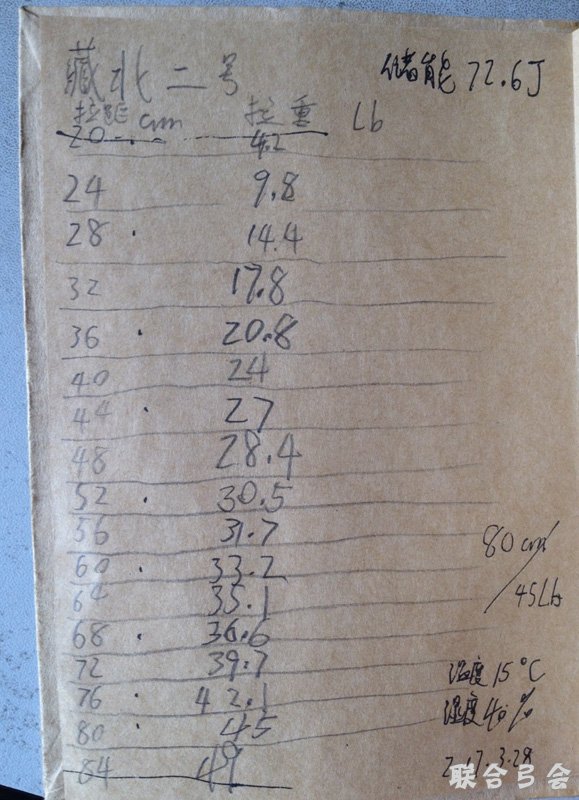 藏北二号 储能 72.6J
拉距 cm 拉重 Lb
20 4.2
24 9.8
28 14.4
32 17.8
36 20.8
40 24
44 27
48 28.4
52 30.5
56 31.7
60 33.2
64 35.1
68 36.6
72 39.7
76 42.1
80 45
84 49
80cm/45Lb
温度 15°C
湿度 40%
2017.3.28
联合弓会